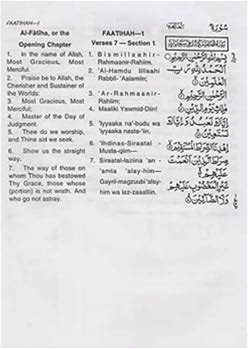 FAATIHAH—1
Al-Fātiha, or the
Opening Chapter
1. In the name of Allah,
Most Gracious, Most
Merciful.
2. Praise be to Allah, the
Cherisher and Sustainer of
the Worlds:
3. Most Gracious, Most
Merciful;
4. Master of the Day of
Judgment.
5. Thee do we worship,
and Thine aid we seek.
6. Show us the straight
way.
7. The way of those on
whom Thou has bestowed
Thy Grace, those whose
(portion) is not wrath. And
who go not astray.
FAATIHAH—1
Verses 7 — Section 1
1. Bismillaahir-
Rahmaanir-Rahiim.
2. 'Al-Hamdu lillaahi
Rabbil-'Aalamiin;
3. 'Ar-Rahmaanir-
Rahiim;
4. Maaliki Yawmid-Diin!
5. 'Iyyaaka na'-budu wa
'iyyaaka nasta-'iin.
6. 'Ihdinas-Siraatal-
Musta-qiim—
7. Siraatal-laziina 'an-
'amta 'alay-him—
Gayril-magzuubi 'alay-
him wa laz-zaaalliin.
بسم الله الرحمن الرحيم
الحمد لله رب العلمين
الرحمن الرحيم
ملك يوم الدين
إياك نعبد وإياك
نستعين
اهدنا الصراط المستقيم
صراط الذين أنعمت
عليهم
غير المغضوب عليهم
ولا الضالين